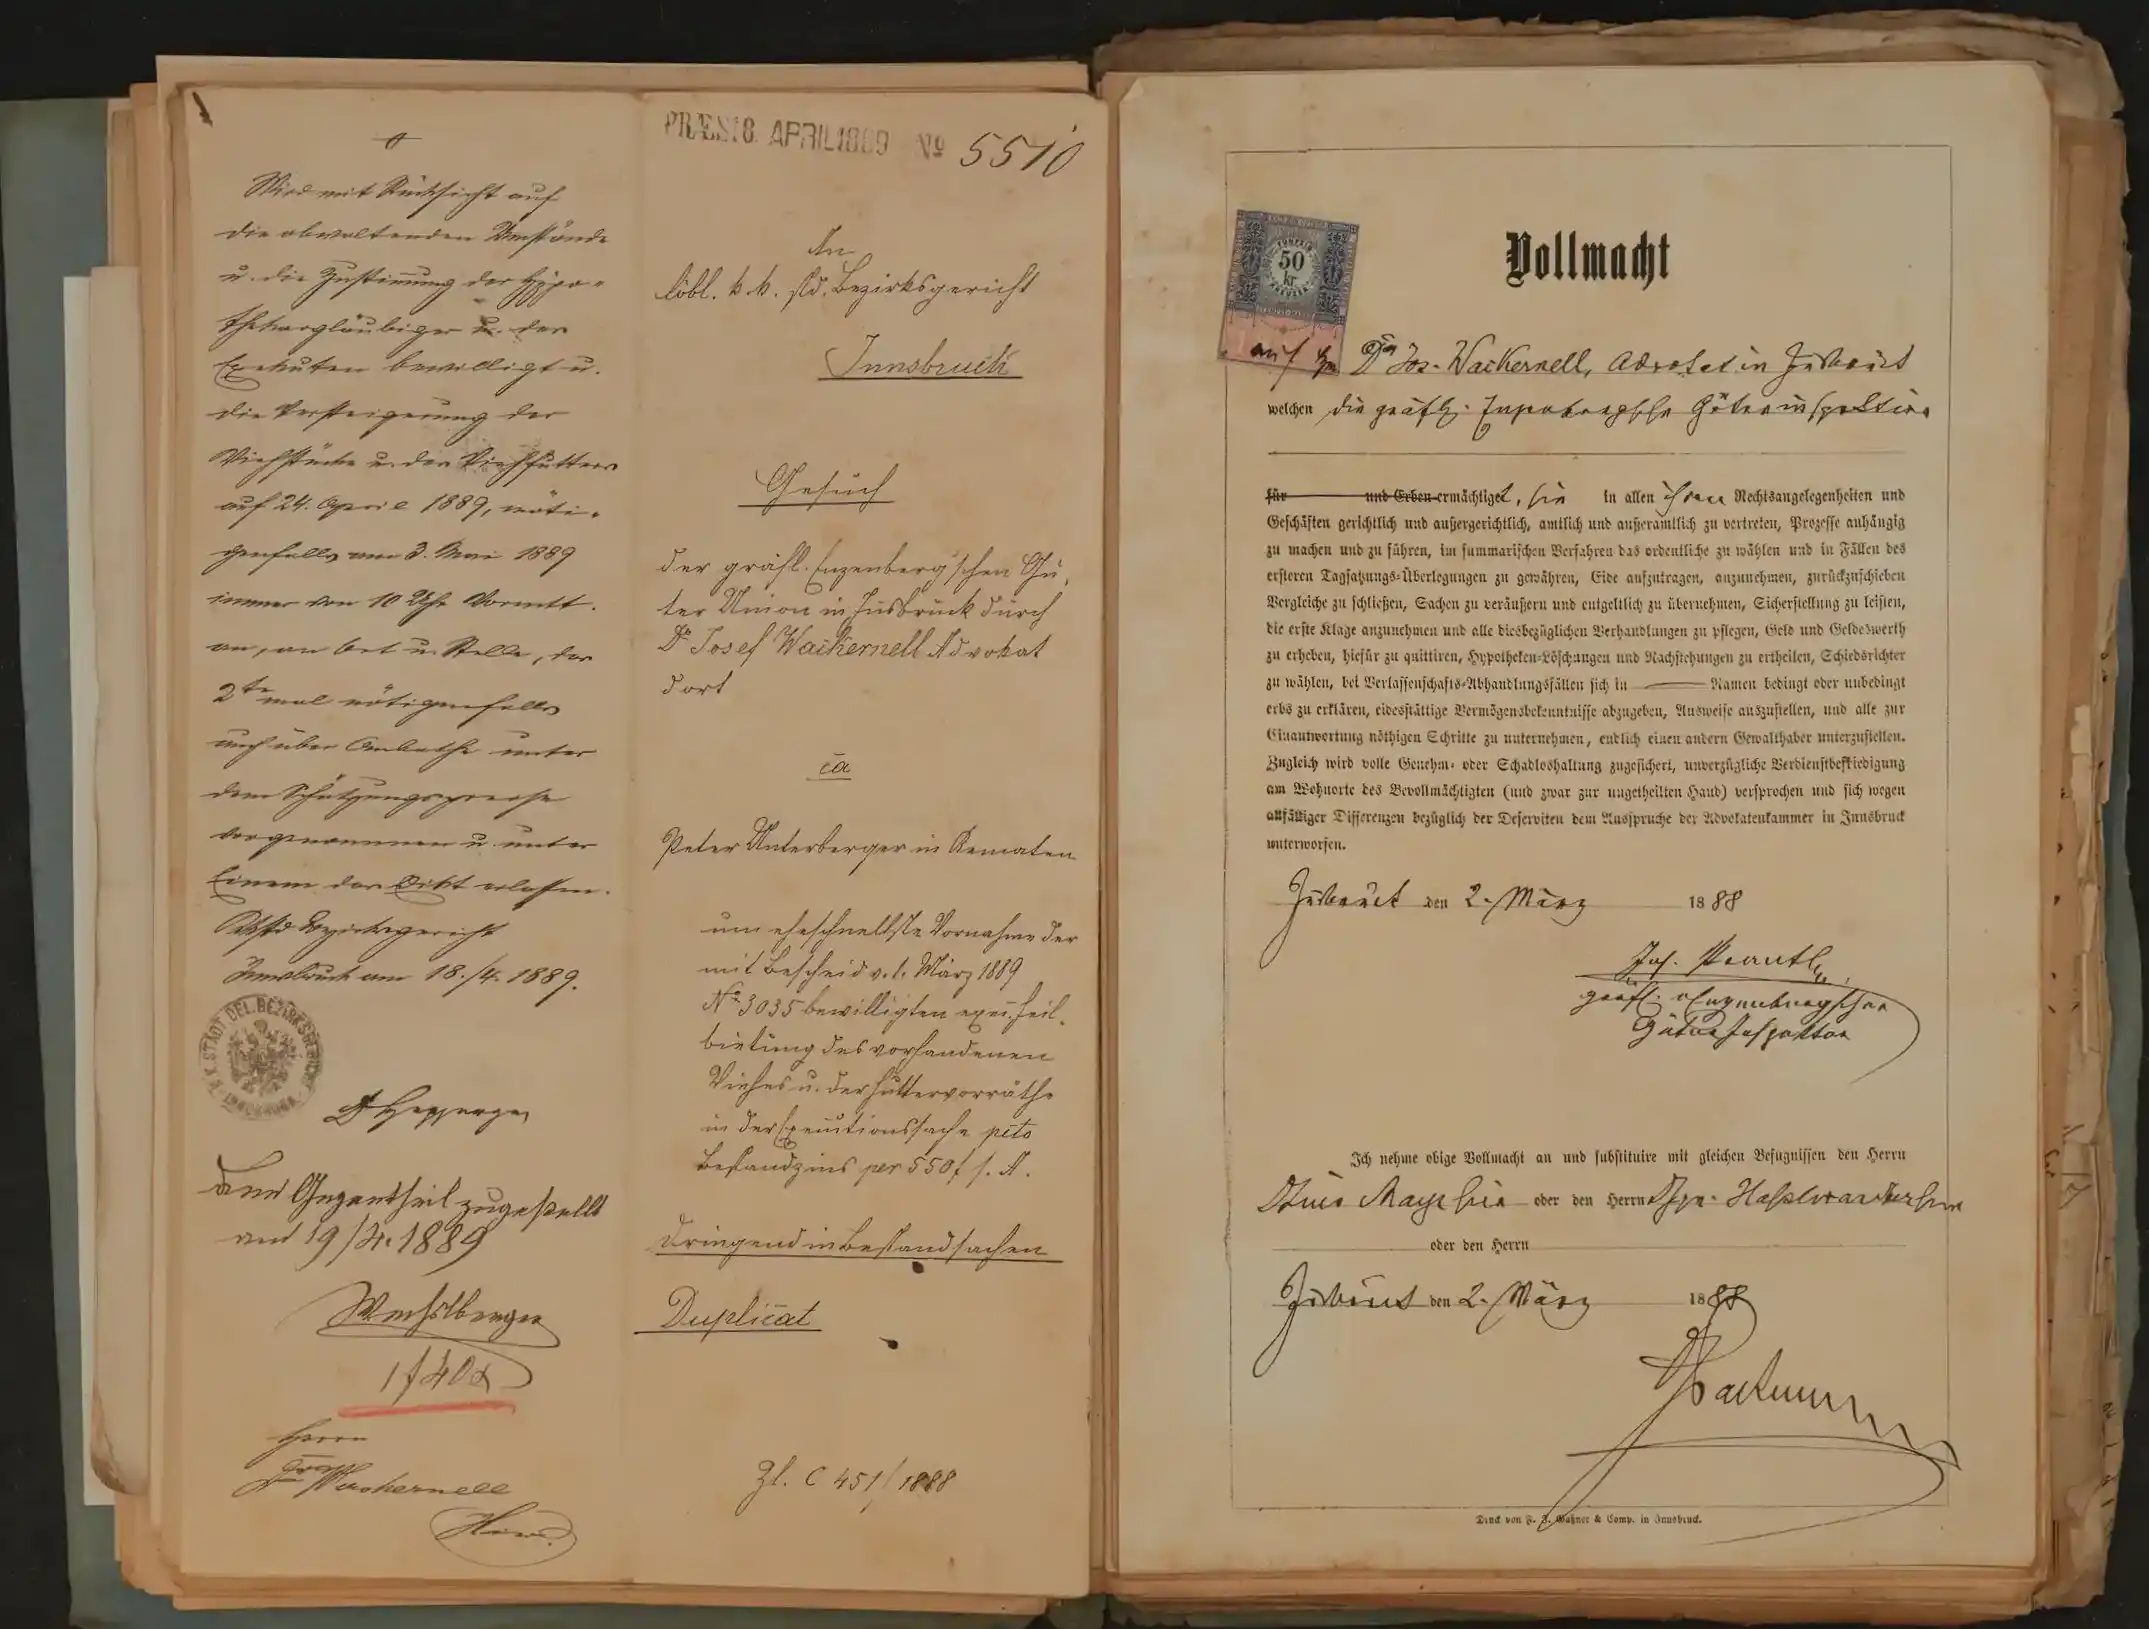 Wird mit Rücksicht auf
die obwaltenden Umstände
u. die Zustimmung der Hypo=
thekargläubiger u. des
Exekuten bewilligt u.
die Versteigerung der
Viehstücke u. des Viehfutters
auf 24. April 1889, nöti-
genfalls am 3. Mai 1889
immer von 10 Uhr Vormitt.
an, an Ort u. Stelle, das
2te mal nötigenfalls
auch über Anbothe unter
dem Schätzungspreise
vorgenommen u. unter
Einem das Edikt erlassen.
Bezirksgericht
Innsbruck am 18./4. 1889.
K. K. STÄDT. DEL. BEZIRKSGERICHT INNSBRUCK
Dem Gegentheil zugestellt
am 19/4. 1889
1 f 40 x
Herrn
Dr Wackernell
Hier.
PRÆS. 18. APRIL 1889 No 5510
An
löbl. k. k. std. Bezirksgericht
Innsbruck
Gesuch
der gräfl. Enzenberg'schen Gü-
ter Union in Insbruck durch
Dr Josef Wackernell Advokat
dort
ca
Peter Unterberger in Kematen
um eheschnellste Vornahme der
mit Bescheid v. 1. März 1889
No 3035 bewilligten exec. Feil-
bietung des vorhandenen
Viehes u. der Futtervorräthe
in der Executionssache pcto
Bestandzins per 550 f s. A.
Dringend in Bestandsachen
Duplicat
Zl. C 451/1888
Vollmacht
FÜNFZIG
50
kr
KREUZER
auf Hrn Dr Jos. Wackernell, Advokat in Insbruck
welchen die gräfl. Enzenberg'sche Güterinspektion
für und Erben ermächtiget, sie in allen ihren Rechtsangelegenheiten und
Geschäften gerichtlich und außergerichtlich, amtlich und außeramtlich zu vertreten, Prozesse anhängig
zu machen und zu führen, im summarischen Verfahren das ordentliche zu wählen und in Fällen des
ersteren Tagsatzungs-Überlegungen zu gewähren, Eide aufzutragen, anzunehmen, zurückzuschieben
Vergleiche zu schließen, Sachen zu veräußern und entgeltlich zu übernehmen, Sicherstellung zu leisten,
die erste Klage anzunehmen und alle diesbezüglichen Verhandlungen zu pflegen, Geld und Geldeswerth
zu erheben, hiefür zu quittiren, Hypotheken-Löschungen und Nachstehungen zu ertheilen, Schiedsrichter
zu wählen, bei Verlassenschafts-Abhandlungsfällen sich in Namen bedingt oder unbedingt
erbs zu erklären, eidesstättige Vermögensbekenntnisse abzugeben, Ausweise auszustellen, und alle zur
Einantwortung nöthigen Schritte zu unternehmen, endlich einen andern Gewalthaber unterzustellen.
Zugleich wird volle Genehm- oder Schadloshaltung zugesichert, unverzügliche Verdienstbefriedigung
am Wohnorte des Bevollmächtigten (und zwar zur ungetheilten Hand) versprochen und sich wegen
allfälliger Differenzen bezüglich der Deserviten dem Ausspruche der Advokatenkammer in Innsbruck
unterworfen.
Insbruck den 2. März 1888
gräfl. Enzenberg'scher
Güter Inspektor
Ich nehme obige Vollmacht an und substituire mit gleichen Befugnissen den Herrn
oder den Herrn
oder den Herrn
Insbruck den 2. März 1888
Druck von F. J. Gaßner & Comp. in Innsbruck.